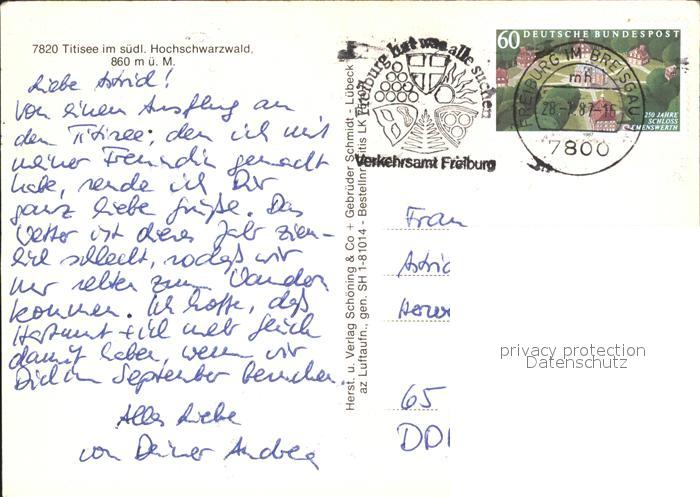 7820 Titisee im südl. Hochschwarzwald,
860 m ü. M.
Liebe Astrid!
Von einem Ausflug an
den Titisee, den ich mit
meiner Freundin gemacht
habe, sende ich Dir
ganz liebe Grüße. Das
Wetter ist dieses Jahr ziem-
lich schlecht, sodaß wir
nur selten zum Wandern
kommen. Ich hoffe, daß
Hartmut + ich mehr Glück
damit haben, wenn wir
Dich im September besuchen.
Alles Liebe
von Deiner Andrea
Herst. u. Verlag Schöning & Co + Gebrüder Schmidt - Lübeck
az Luftaufn., gen. SH 1-81014 - Bestellnr. Titis LK
Freiburg hat was alle suchen
Verkehrsamt Freiburg
60 DEUTSCHE BUNDESPOST
250 JAHRE
SCHLOSS
CLEMENSWERTH
1987
FREIBURG IM BREISGAU
mh
28.-.87-16
7800
Frau
Astrid
65
DDR
privacy protection
Datenschutz